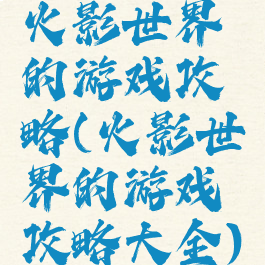 火影世界
的游戏攻
略(火影世
界的游戏
攻略大全)